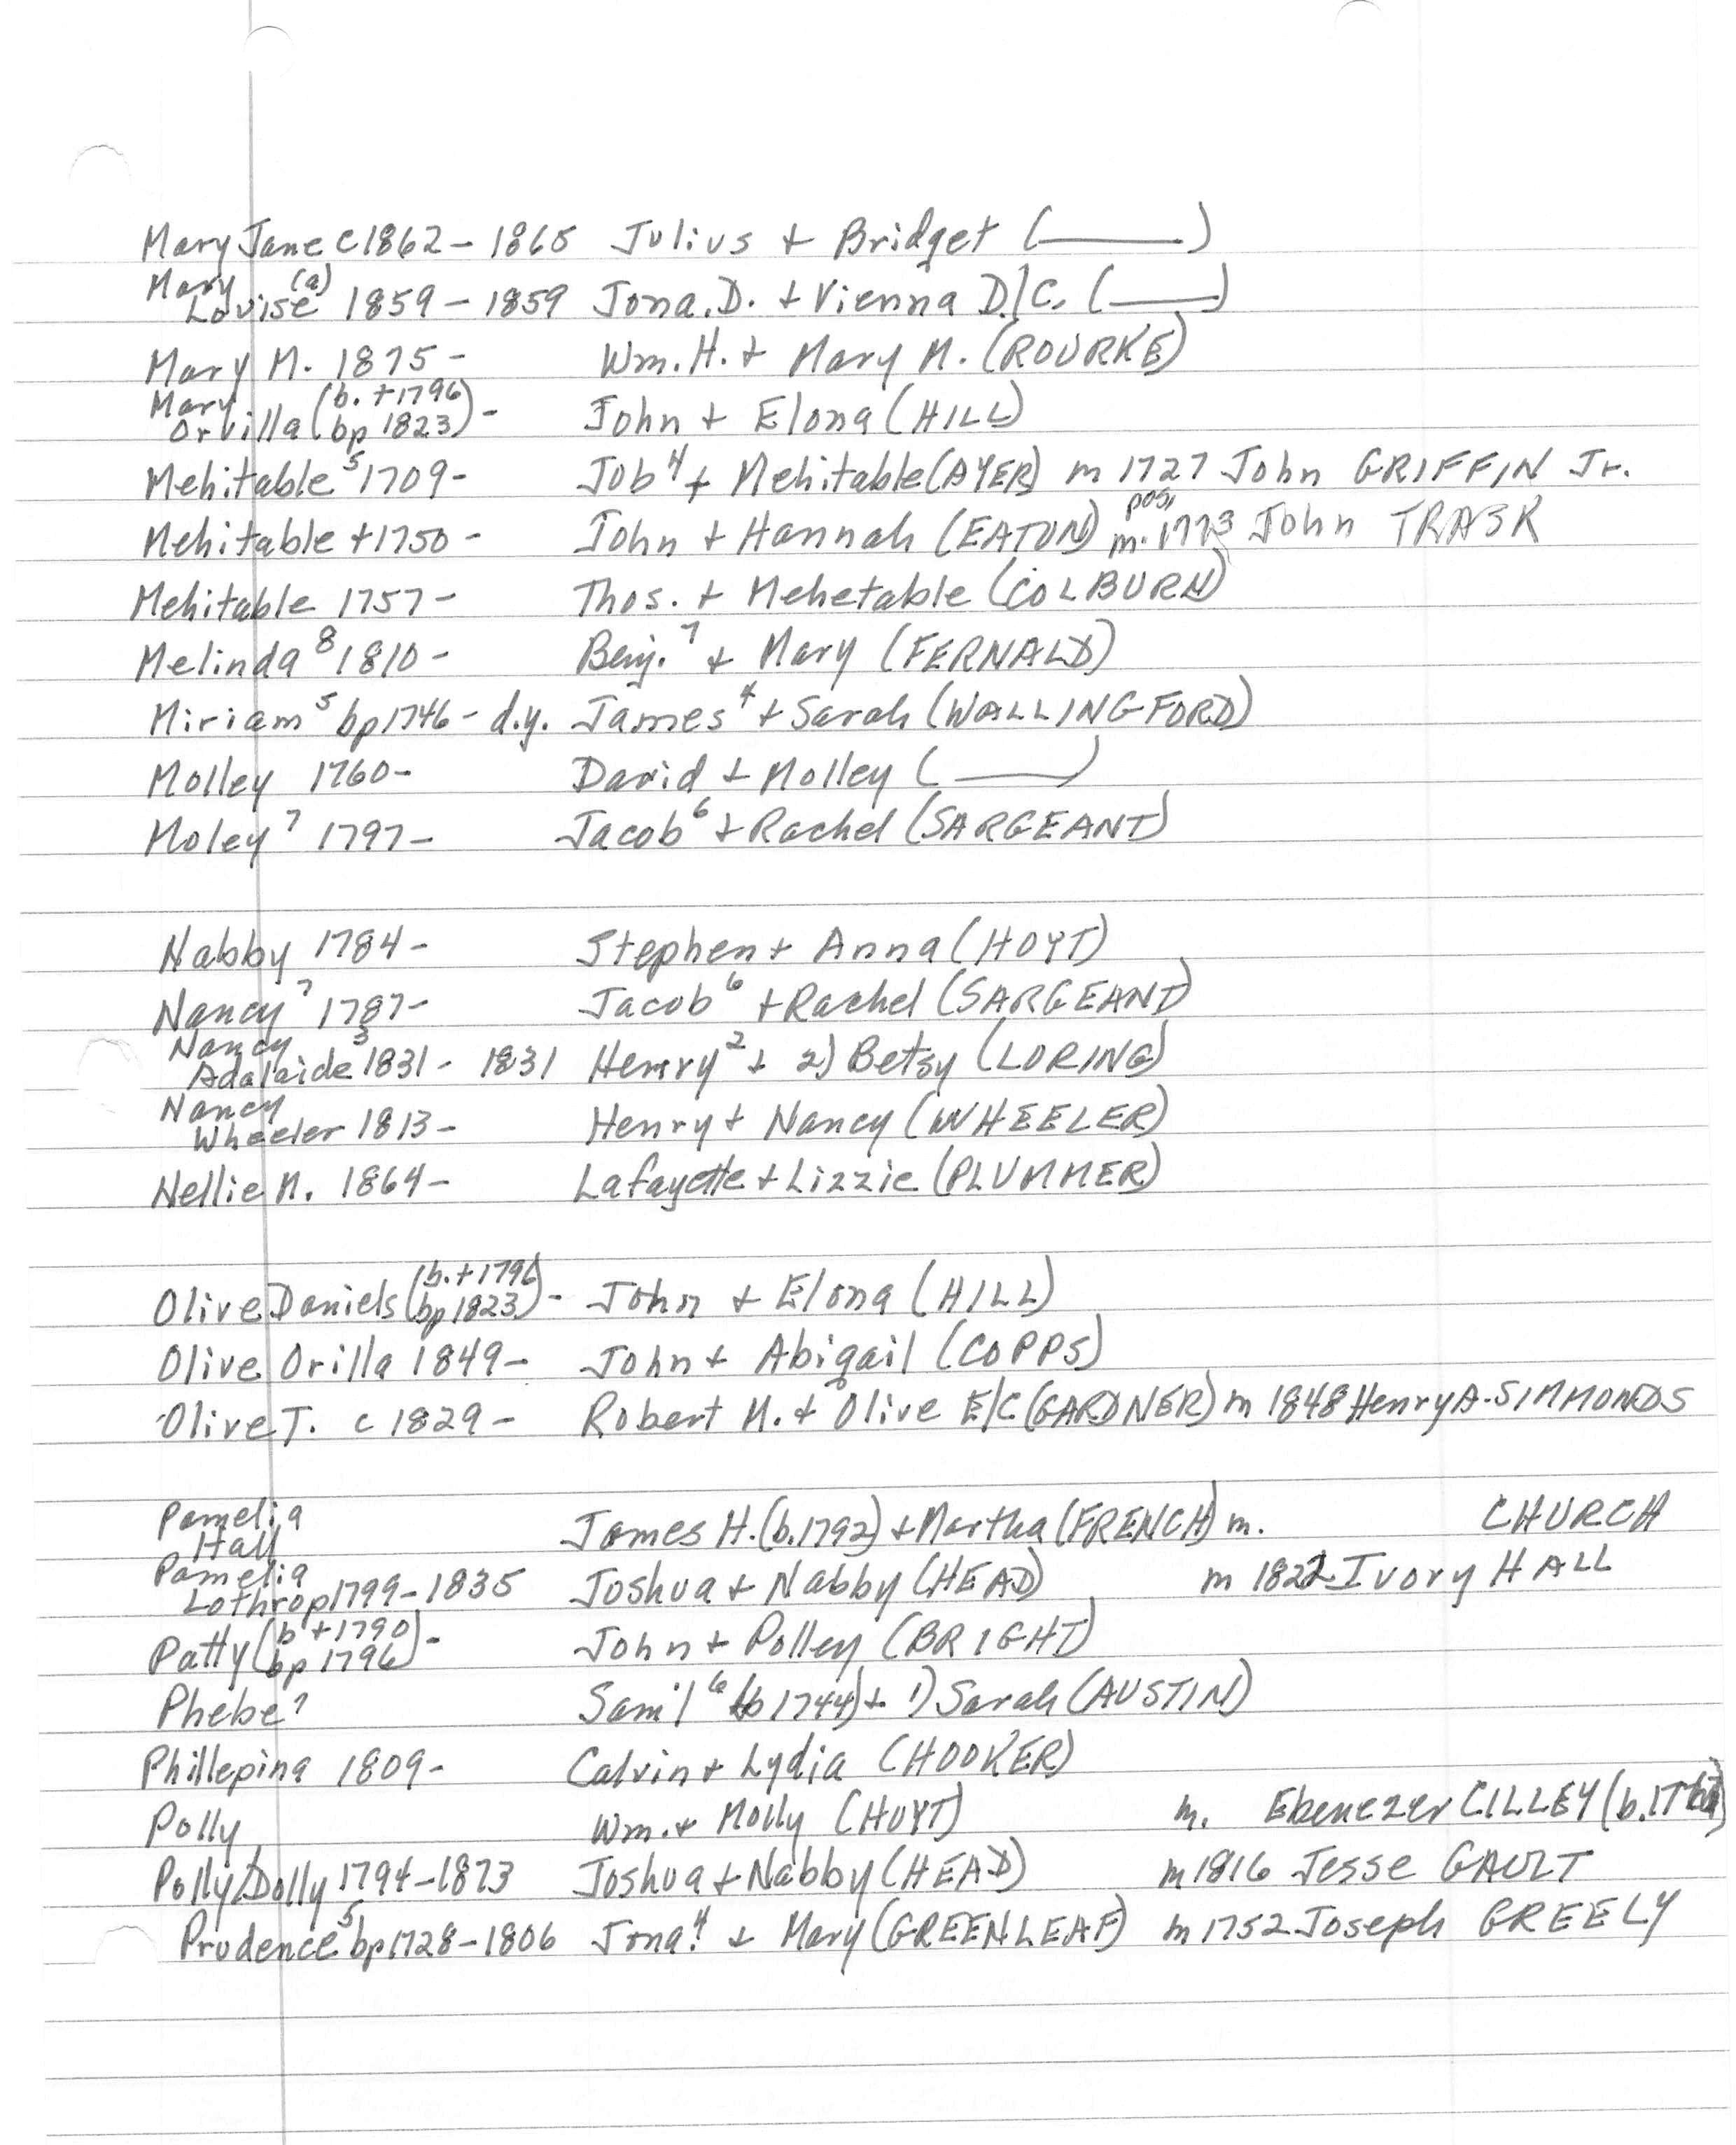 Mary Jane c1862 - 1865 Julius + Bridget (______)
Mary Louise(a) 1859 - 1859 Jona. D. + Vienna D./C. (______)
Mary M. 1875 - Wm. H. + Mary M. (ROURKE)
Mary Orvilla (b. +1796 bp 1823) - John + Elona (HILL)
Mehitable⁵ 1709- Job⁴ + Mehitable (AYER) m 1727 John GRIFFIN Jr.
Mehitable +1750 - John + Hannah (EATON) pos. m. 1773 John TRASK
Mehitable 1757 - Thos. + Mehetable (COLBURN)
Melinda⁸ 1810 - Benj.⁷ + Mary (FERNALD)
Miriam⁵ bp1746 - d.y. James⁴ + Sarah (WALLINGFORD)
Molley 1760- David + Molley (______)
Moley⁷ 1797- Jacob⁶ + Rachel (SARGEANT)
Nabby 1784 - Stephen + Anna (HOYT)
Nancy⁷ 1787- Jacob⁶ + Rachel (SARGEANT)
Nancy Adalaide³ 1831 - 1831 Henry² + 2) Betsy (LORING)
Nancy Wheeler 1813 - Henry + Nancy (WHEELER)
Nellie M. 1864 - Lafayette + Lizzie (PLUMMER)
Olive Daniels (b. +1796 bp 1823) - John + Elona (HILL)
Olive Orilla 1849 - John + Abigail (COPPS)
Olive T. c 1829 - Robert M. + Olive E/C (GARDNER) m 1848 Henry A. SIMMONDS
Pamelia Hall James H. (b.1792) + Martha (FRENCH) m. CHURCH
Pamelia Lothrop 1799 - 1835 Joshua + Nabby (HEAD) m 1822 Ivory HALL
Patty (b +1790 bp 1796) - John + Polley (BRIGHT)
Phebe⁷ Sam'l⁶ (b 1744) + 1) Sarah (AUSTIN)
Philлepina 1809 - Calvin + Lydia (HOOKER)
Polly Wm. + Molly (HOYT) m. Ebenezer CILLEY
Polly/Dolly 1794-1873 Joshua + Nabby (HEAD) m 1816 Jesse GAULT
Prudence⁵ bp1728 - 1806 Jona.⁴ + Mary (GREENLEAF) m 1752 Joseph GREELY